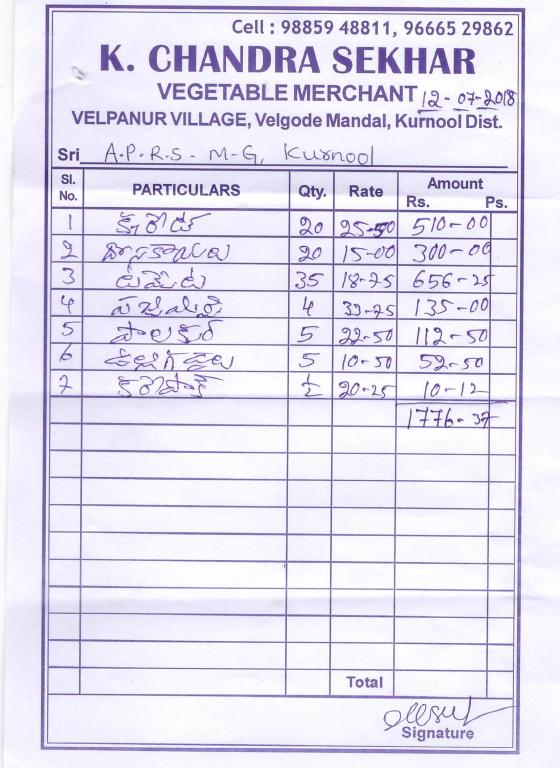 Cell : 98859 48811, 96665 29862
K. CHANDRA SEKHAR
VEGETABLE MERCHANT 12-07-2018
VELPANUR VILLAGE, Velgode Mandal, Kurnool Dist.
Sri A.P.R.S. M-G, Kurnool
Sl. No. PARTICULARS Qty. Rate Amount Rs. Ps.
1 క్యారెట్ 20 25-50 510-00
2 దోసకాయలు 20 15-00 300-00
3 టమోట 35 18-75 656-25
4 పచ్చిమిర్చి 4 33-75 135-00
5 పాలకూర 5 22-50 112-50
6 ఉల్లిగడ్డలు 5 10-50 52-50
7 కరివేపాక్ ½ 20-25 10-12
1776-37
Total
Signature